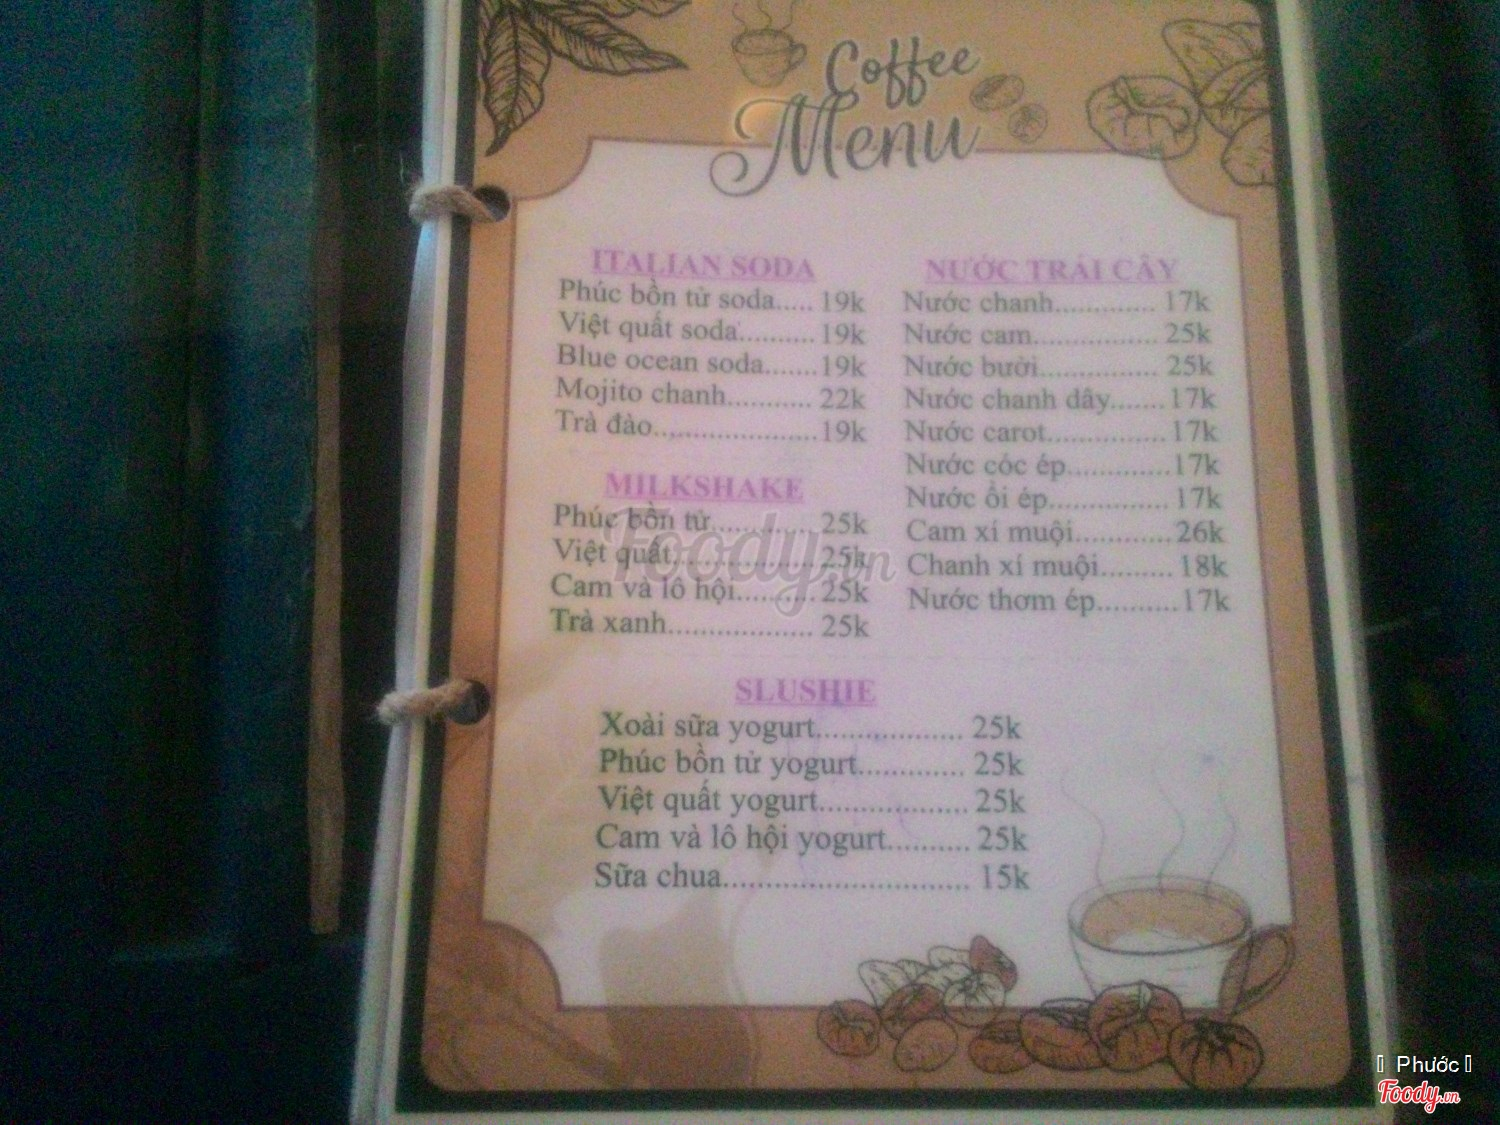 Coffee
Menu
ITALIAN SODA
Phúc bồn tử soda..... 19k
Việt quất soda.......... 19k
Blue ocean soda.......19k
Mojito chanh........... 22k
Trà đào......................19k
MILKSHAKE
Phúc bồn tử............. 25k
Việt quất...................25k
Cam và lô hội.......... 25k
Trà xanh.................. 25k
NƯỚC TRÁI CÂY
Nước chanh............. 17k
Nước cam................ 25k
Nước bưởi............... 25k
Nước chanh dây.......17k
Nước carot...............17k
Nước cóc ép.............17k
Nước ổi ép............... 17k
Cam xí muội............26k
Chanh xí muội......... 18k
Nước thơm ép..........17k
SLUSHIE
Xoài sữa yogurt.................. 25k
Phúc bồn tử yogurt............. 25k
Việt quất yogurt.................. 25k
Cam và lô hội yogurt.......... 25k
Sữa chua............................ 15k
Foody.vn
Phước
Foody.vn